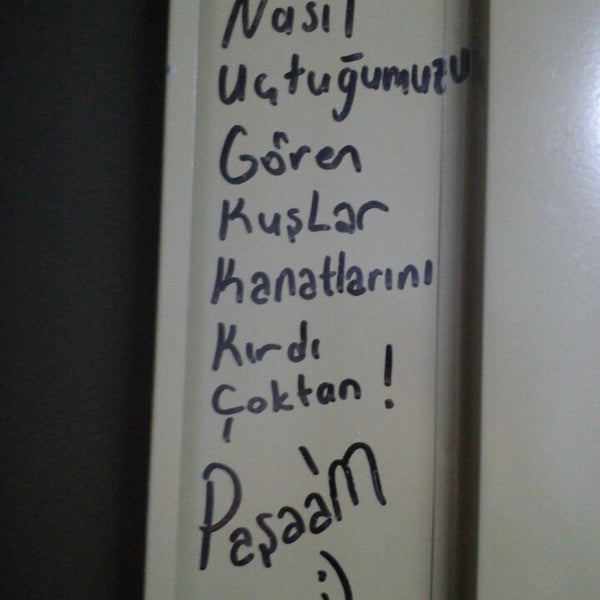 Nasıl
Uçtuğumuzu
Gören
KuşLar
Kanatlarını
Kırdı
Çoktan !
Paşaa'm
:)